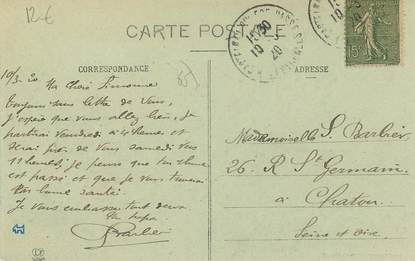 12€
CARTE POSTALE
15 30
10 - 3
20
15c
CORRESPONDANCE
ADRESSE
10/3. 20 Ma chère Simonne
lettre de vous,
J'espère que vous allez bien, je
partirai Vendredi à 4 heures et
serai près de vous samedi vers
11 heures, je pense que ton rhume
est passé et que je vous trouverai
en bonne santé.
Je vous embrasse tout deux
Ton papa
Barbier
Mademoiselle S. Barbier
26. R St Germain.
à Chatou
Seine et Oise